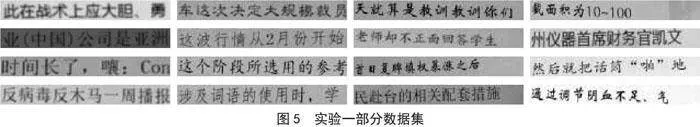 此在战术上应大胆、勇
车这次决定大规模裁员
天就算是教训教训你们
截面积为10~100
业(中国)公司是亚洲
这波行情从2月份开始
老师却不正面回答学生
州仪器首席财务官凯文
时间长了，嚷：Con
这个阶段所选用的参考
首日复牌填权暴涨之后
然后就把话筒“啪”地
反病毒反木马一周播报
涉及词语的使用时，学
民赴台的相关配套措施
通过调节阴血不足、气
图5 实验一部分数据集